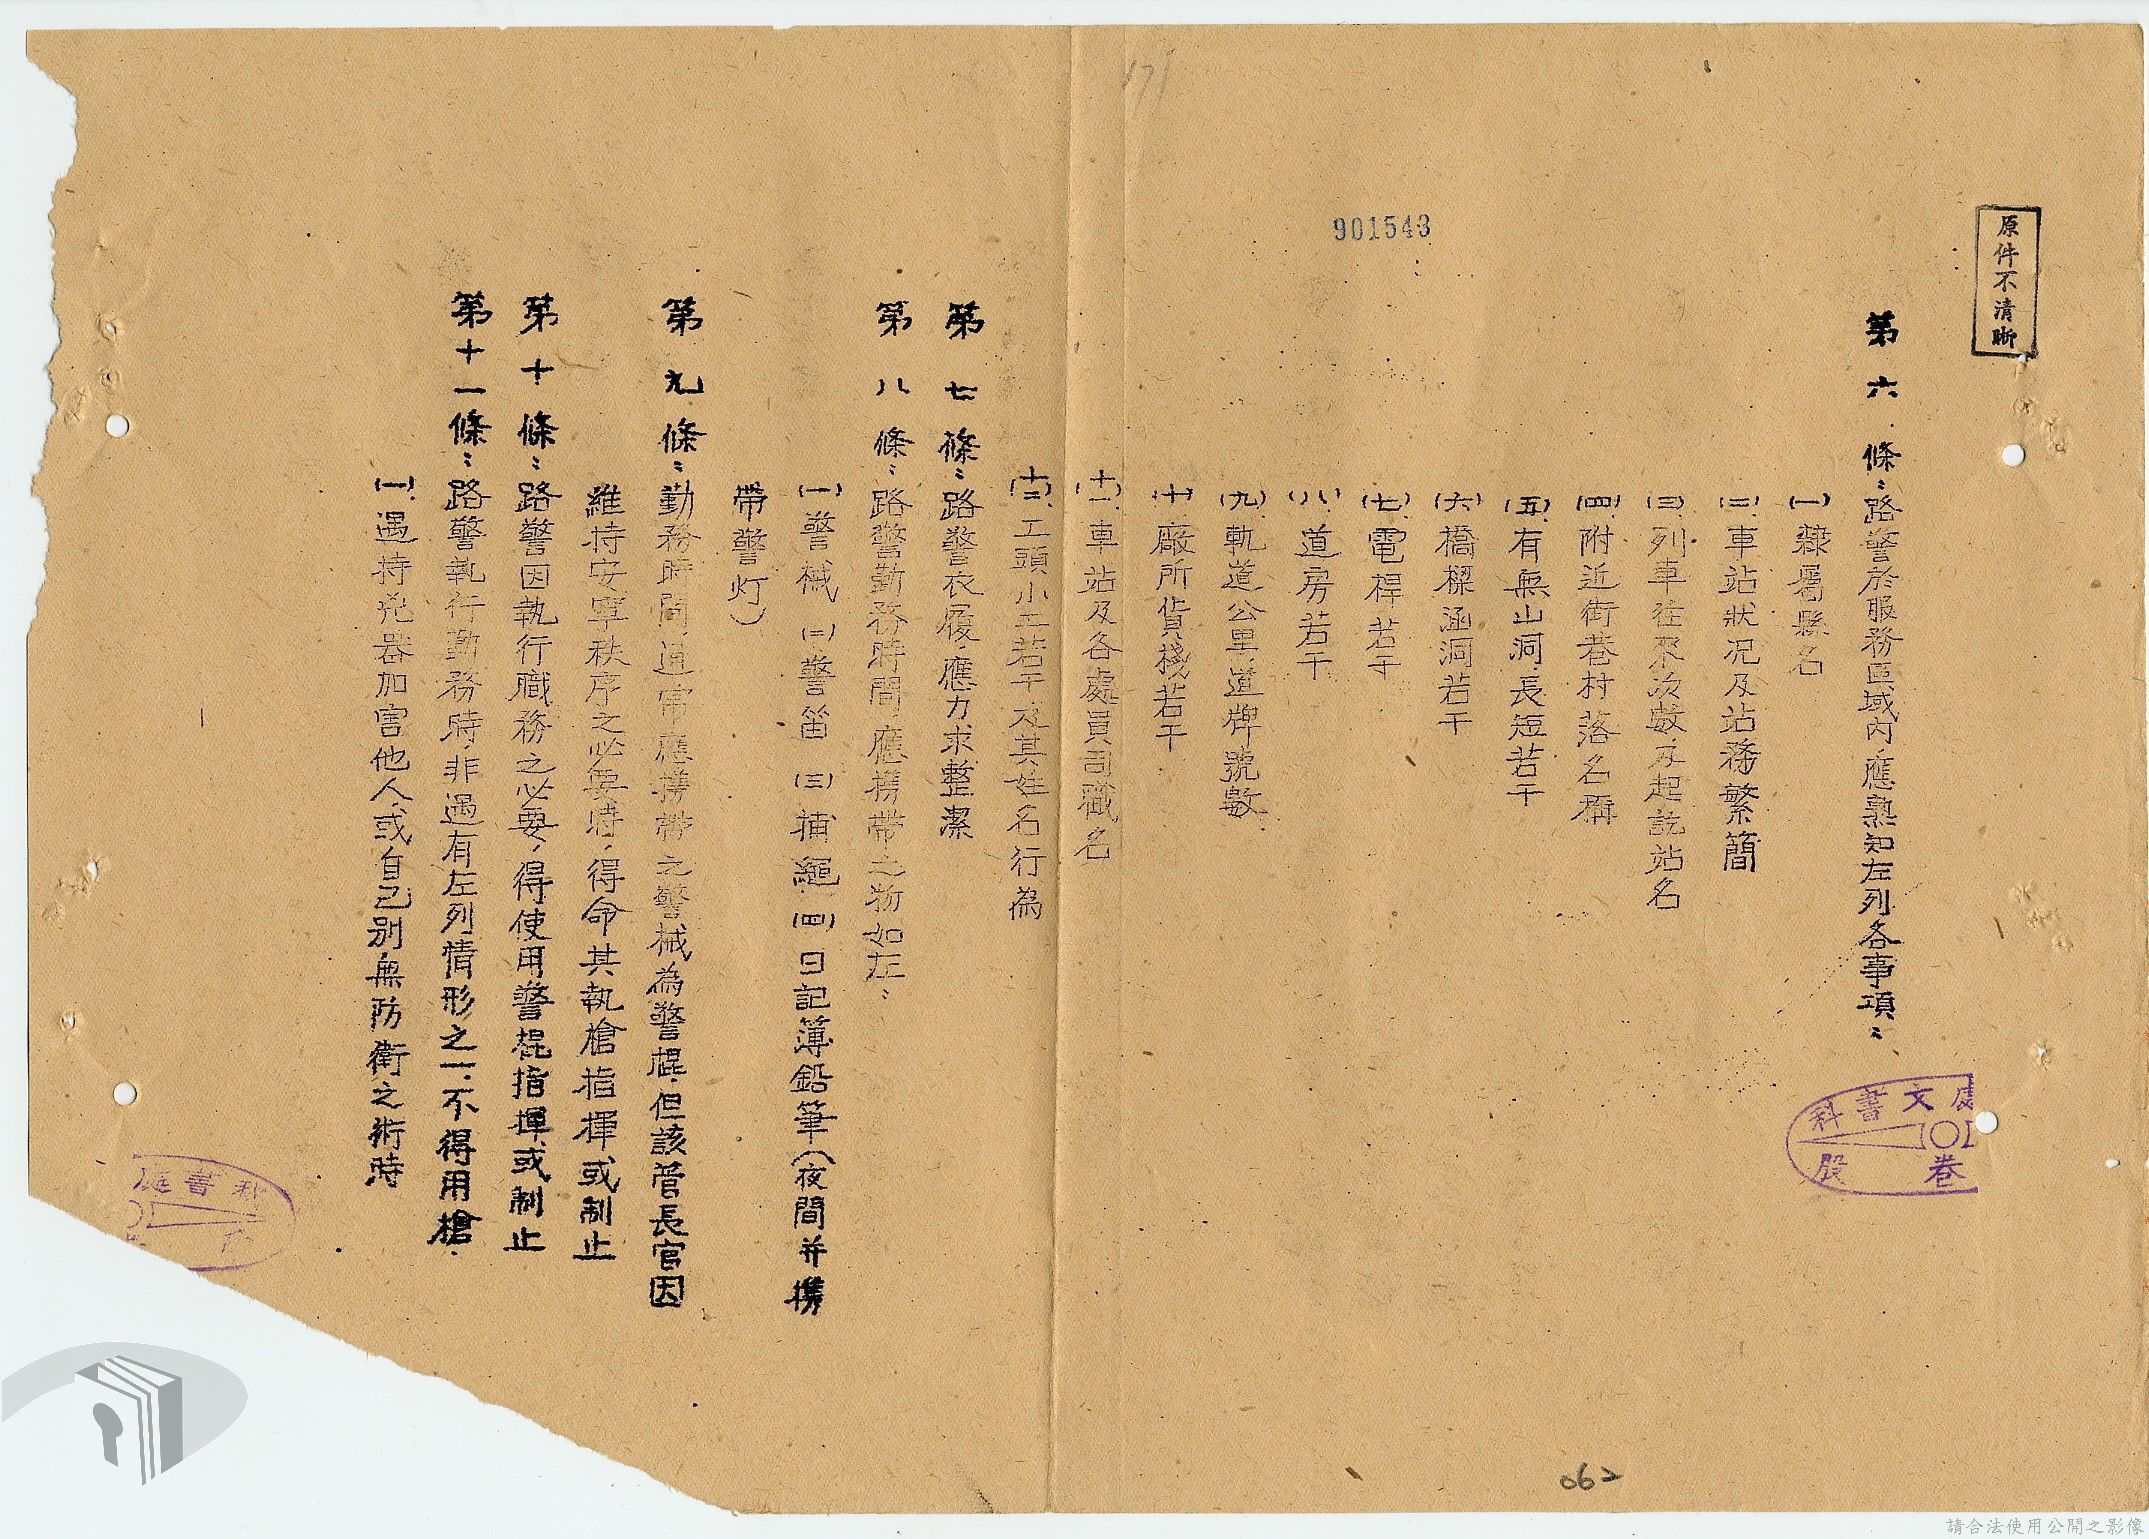 原件不清晰
901543
第六條：路警於服務區域內，應熟知左列各事項：
(一)隸屬縣名
(二)車站狀况及站務繁簡
(三)列車往來次數及起訖站名
(四)附近街巷村落名稱
(五)有無山洞、長短若干
(六)橋樑涵洞若干
(七)電桿若干
(八)道房若干
(九)軌道公里、道牌號數
(十)廠所貨棧若干
(十一)車站及各處員司職名
(十二)工頭小工若干及其姓名行為
第七條：路警衣履，應力求整潔
第八條：路警勤務時間，應携帶之物如左：
(一)警械 (二)警笛 (三)捕繩 (四)日記簿鉛筆(夜間并携
帶警灯)
第九條：勤務時間，通常應携帶之警械為警棍，但該管長官因
維持安寧秩序之必要時，得命其執槍指揮或制止
第十條：路警因執行職務之必要，得使用警棍指揮或制止
第十一條：路警執行勤務時，非遇有左列情形之一，不得用槍.
(一)遇持兇器加害他人、或自己別無防衛之術時
處文書科
卷 股
書
062
請合法使用公開之影像